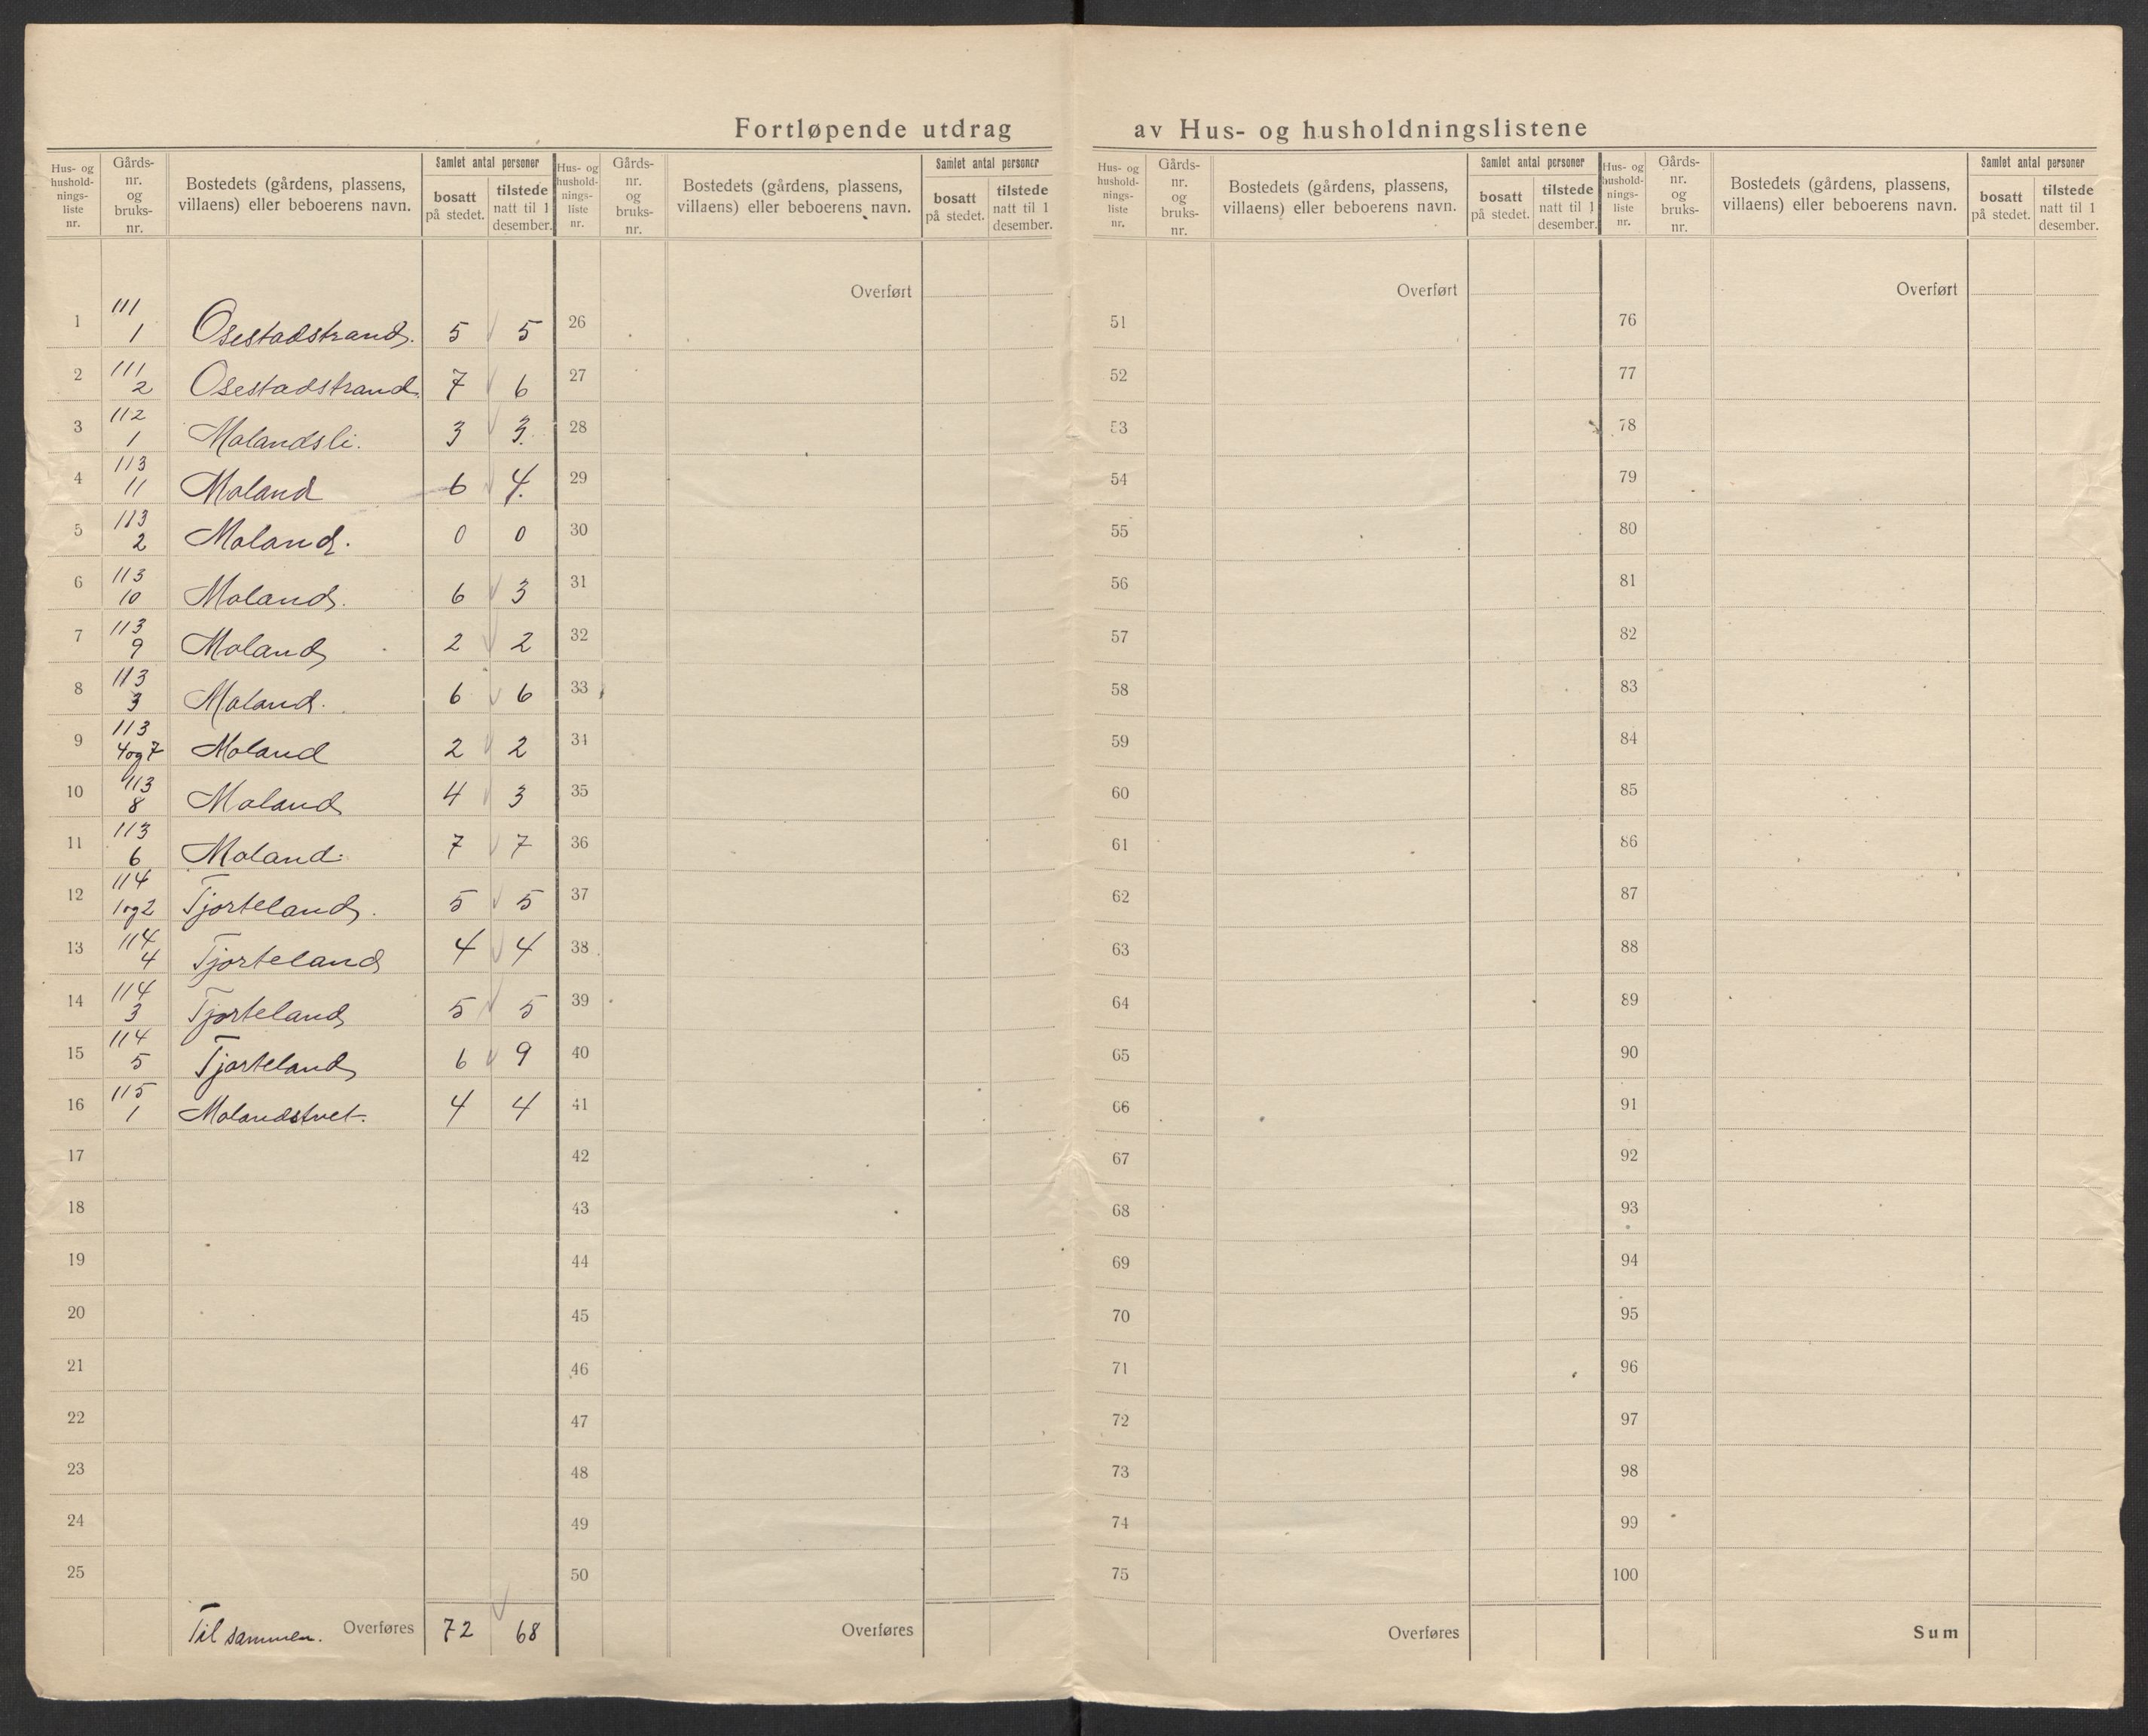 Fortløpende utdrag av Hus- og husholdningslistene
Hus- og hushold- nings- liste nr.
Gårds- nr. og bruks- nr.
Bostedets (gårdens, plassens, villaens) eller beboerens navn.
Samlet antal personer
bosatt på stedet.
tilstede natt til 1 desember.
1 111 1 Osestadstrand. 5 5
2 111 2 Osestadstrand 7 6
3 112 1 Molandsli. 3 3.
4 113 11 Moland 6 4.
5 113 2 Moland. 0 0
6 113 10 Moland. 6 3
7 113 9 Moland 2 2
8 113 3 Moland. 6 6
9 113 4og7 Moland 2 2
10 113 8 Moland 4 3
11 113 6 Moland. 7 7
12 114 1og2 Tjorteland. 5 5
13 114 4 Tjorteland 4 4
14 114 3 Tjorteland 5 5
15 114 5 Tjorteland 6 9
16 115 1 Molandstvet. 4 4
17
18
19
20
21
22
23
24
25
Til sammen. Overføres 72 68
Hus- og hushold- nings- liste nr.
Gårds- nr. og bruks- nr.
Bostedets (gårdens, plassens, villaens) eller beboerens navn.
Samlet antal personer
bosatt på stedet.
tilstede natt til 1 desember.
Overført
26
27
28
29
30
31
32
33
34
35
36
37
38
39
40
41
42
43
44
45
46
47
48
49
50
Overføres
Hus- og hushold- nings- liste nr.
Gårds- nr. og bruks- nr.
Bostedets (gårdens, plassens, villaens) eller beboerens navn.
Samlet antal personer
bosatt på stedet.
tilstede natt til 1 desember.
Overført
51
52
53
54
55
56
57
58
59
60
61
62
63
64
65
66
67
68
69
70
71
72
73
74
75
Overføres
Hus- og hushold- nings- liste nr.
Gårds- nr. og bruks- nr.
Bostedets (gårdens, plassens, villaens) eller beboerens navn.
Samlet antal personer
bosatt på stedet.
tilstede natt til 1 desember.
Overført
76
77
78
79
80
81
82
83
84
85
86
87
88
89
90
91
92
93
94
95
96
97
98
99
100
Sum